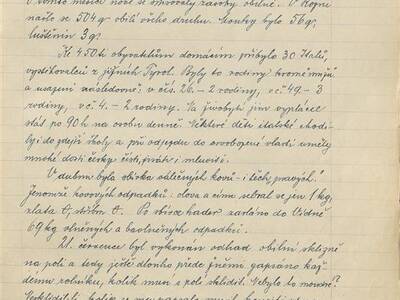 v tomto měsíci noví se
našlo se 504 q obilí všeho druhu. Mouky bylo 56 q,
luštěnin 3 q.
Ke 450ti obyvatelům domácím přibylo 30 Italů,
vystěhovalců z jižních Tyrol. Byly to rodiny
a usazeni následovně: v čís. 26. – 2 rodiny, v č. 49. – 3
rodiny, v č. 4. – 2 rodiny. Na živobytí jim vyplácel
stát po 90 h na osobu denně. Některé děti italské chodi-
ly i do zdejší školy a při odjezdu do osvobozené vlasti uměly
mnohé dosti česky čísti, psáti i mluviti.
V dubnu byla sbírka obličených kovů i těch „pravých“.
Jenomže kovových odpadků: olova a cínu sebral se jen 1 kg,
zlata 0, stříbra 0. Po sbírce hader zasláno do Vídně
69 kg vlněných a bavlněných odpadků.
21. července byl vykonán odhad obilní sklizně
na poli a tedy ještě dlouho přede žněmi zapsáno kaž-
dému rolníku, kolik musí s polí skliditi. Nebylo to moudré?